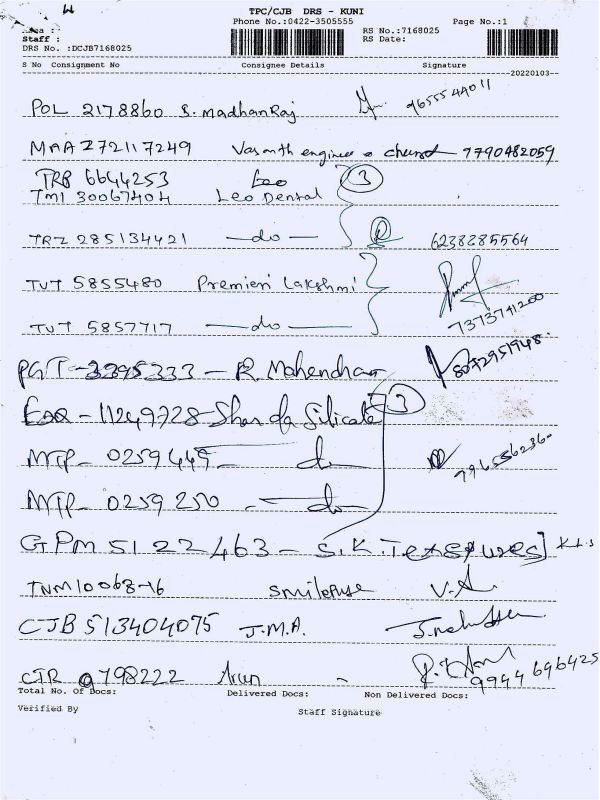 TPC/CJB DRS - KUNI
Phone No.:0422-3505555 Page No.:1
Area : RS No.:7168025
Staff : RS Date:
DRS No. :DCJB7168025
S No Consignment No Consignee Details Signature
20220103
POL 2178860 S. Madhan Raj 9655544011
MAA 272117249 Vasanth engineer 7790482059
TRB 6644253 Leo 3
TMI 30067404 Leo Dental
TRZ 285134421 —do— 6238285564
TUT 5855480 Premieri Lakshmi
7373741200
TUT 5857717 —do—
PGT -3395333 - R Mahendhar 8072951948.
- 11249728- Sharda Silicate 3
MTP- 0259449 - do
MTP- 0259250 - do
GPM 5122463 - S.K. Textures]
TNM10068-16 smilepure V.A.
CJB 513404075 J.M.A.
CJR 0798222 Arun - 9944 646425
Total No. Of Docs: Delivered Docs: Non Delivered Docs:
Verified By Staff Signature